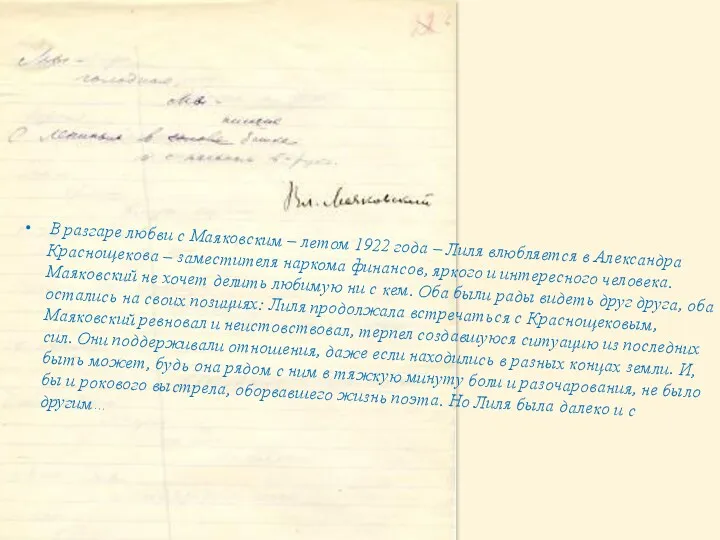 Мы -
голодные,
Мы -
нищие
С Лениным в башке
и с наганом в руке.
Вл. Маяковский
• В разгаре любви с Маяковским – летом 1922 года – Лиля влюбляется в Александра
Краснощекова – заместителя наркома финансов, яркого и интересного человека.
Маяковский не хочет делить любимую ни с кем. Оба были рады видеть друг друга, оба
остались на своих позициях: Лиля продолжала встречаться с Краснощековым,
Маяковский ревновал и неистовствовал, терпел создавшуюся ситуацию из последних
сил. Они поддерживали отношения, даже если находились в разных концах земли. И,
быть может, будь она рядом с ним в тяжкую минуту боли и разочарования, не было
бы и рокового выстрела, оборвавшего жизнь поэта. Но Лиля была далеко и с
другим…